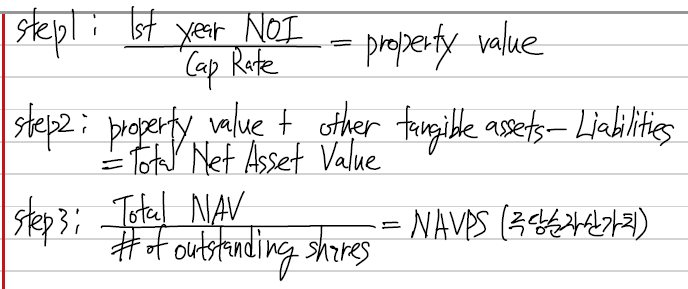 step1: 1st year NOI / Cap Rate = property value
step2: property value + other tangible assets - Liabilities
= Total Net Asset Value
step3: Total NAV / # of outstanding shares = NAVPS (주당순자산가치)